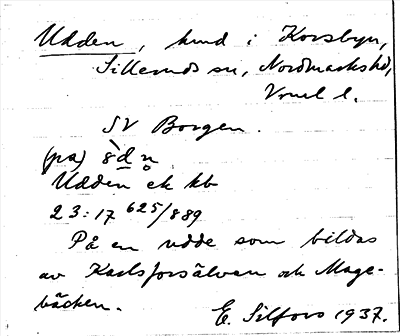 Udden, hmd i Korsbyn,
Silleruds sn, Nordmarks hd,
Vrml l.
SV Borgen.
(på) 8̀dn̥
Udden ek kb
23:17 625/889
På en udde som bildas
av Karlsforsälven och Mage-
bäcken.
E. Silfors 1937.